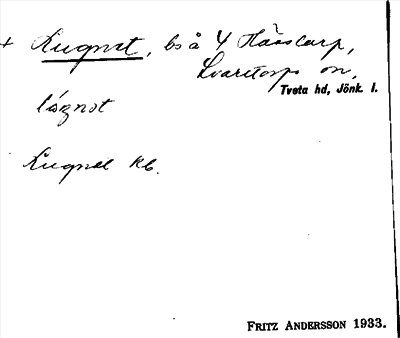 + Lugnet, bs å 4 Hässtarp,
Svarttorps sn,
Tveta hd, Jönk. l.
Lugnet kb.
FRITZ ANDERSSON 1933.